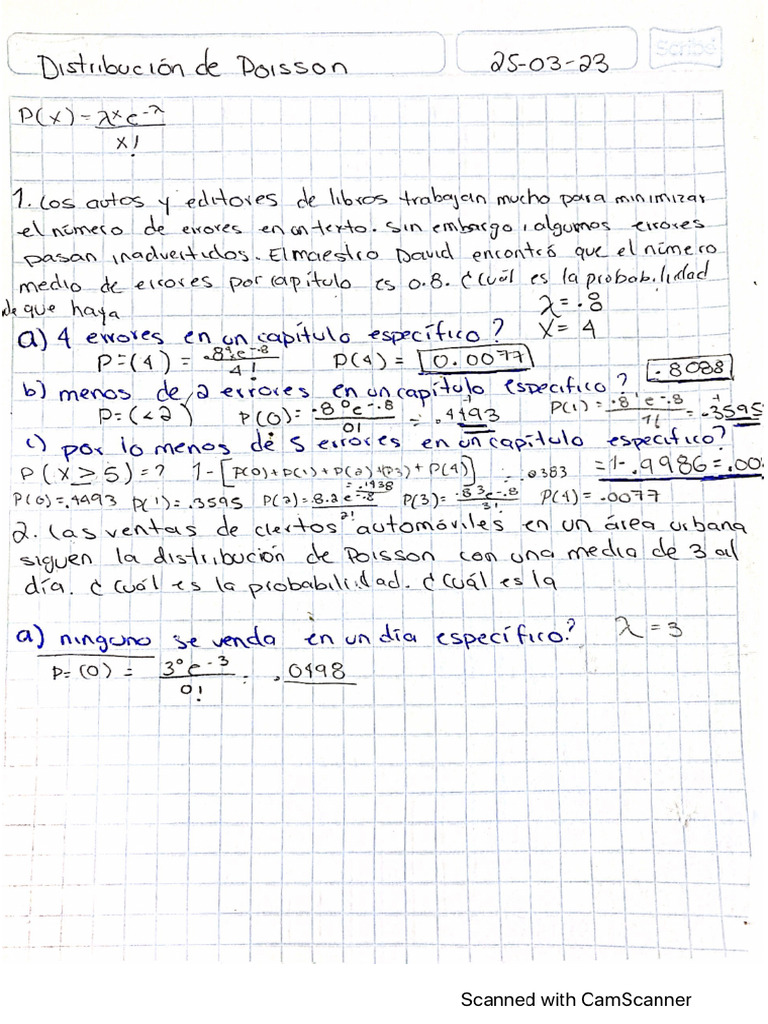 Distribución de Poisson
25-03-23
Scribe
P(x) = λˣe^-λ / x!
1. Los autos y editores de libros trabajan mucho para minimizar
el número de errores en un texto. Sin embargo, algunos errores
pasan inadvertidos. El maestro David encontró que el número
medio de errores por capítulo es 0.8. ¿Cuál es la probabilidad
de que haya
λ = .8
a) 4 errores en un capítulo específico? x = 4
P=(4) = .8⁴e^-.8 / 4! P(4) = 0.0077
.8088
b) menos de 2 errores en un capítulo específico?
P=(<2) P(0) = .8⁰e^-.8 / 0! = .4493 + P(1) = .8¹e^-.8 / 1! = .3595
c) por lo menos de 5 errores en un capítulo específico?
P(x ≥ 5) = ? 1-[P(0)+P(1)+P(2)+P(3)+P(4)] = .0383 = 1-.9986=.00
P(0)=.4493 P(1)=.3595 P(2)=8.2e^-.8 / 2! = .1438 P(3)=.8³e^-.8 / 3! P(4)=.0077
2. Las ventas de ciertos automóviles en un área urbana
siguen la distribución de Poisson con una media de 3 al
día. ¿Cuál es la probabilidad. ¿Cuál es la
a) ninguno se venda en un día específico? λ = 3
P=(0) = 3⁰e^-3 / 0! = .0498
Scanned with CamScanner